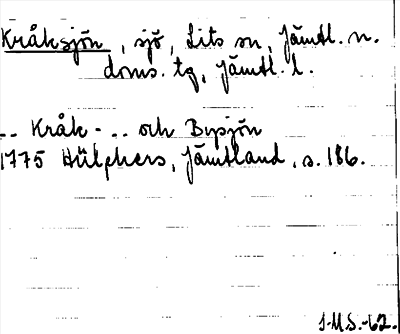 Kråksjön, sjö, Lits sn, Jämtl. n.
doms. tg, Jämtl. l.
-- Kråk- .. och Bysjön
1775 Hülphers, Jämtland, s. 186.
J.M.S.-62.